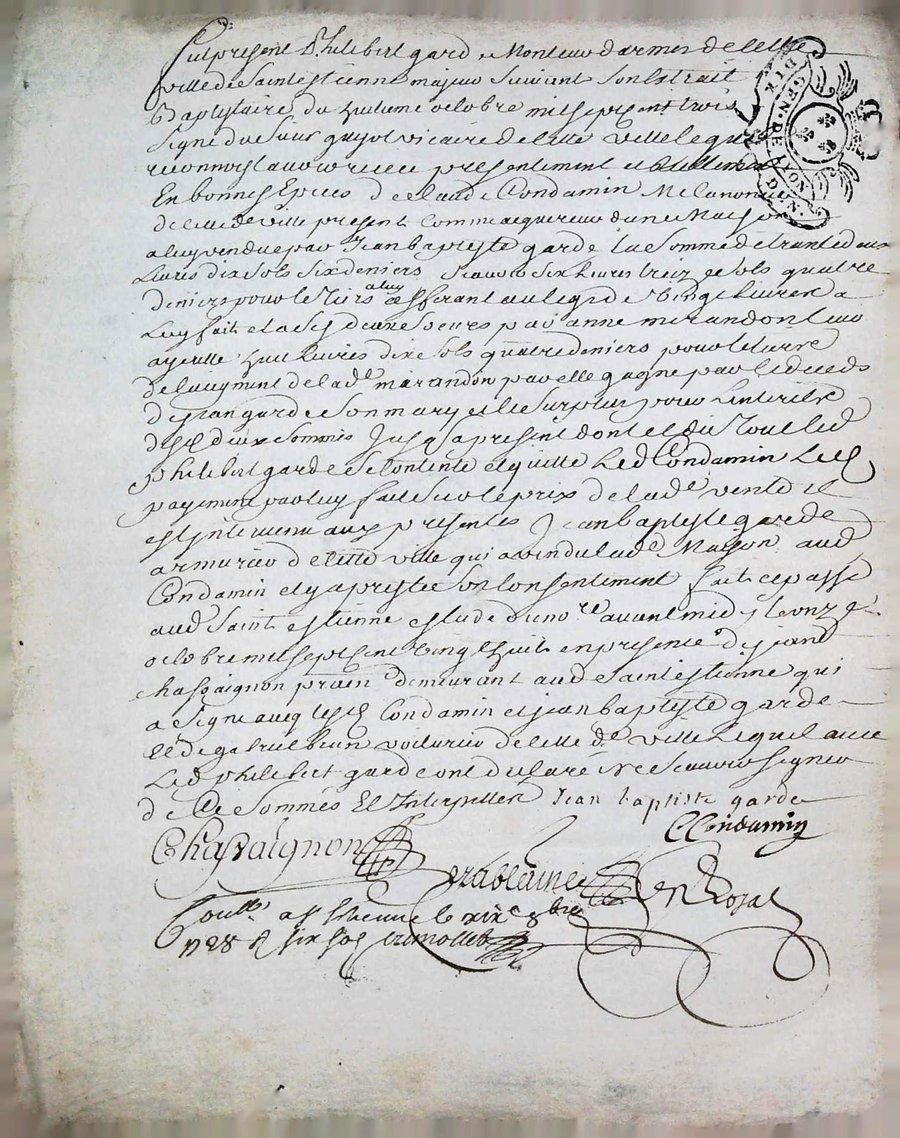 fut present Philibert garde Monteur d'armes de cette
ville de Saint estienne majeur suivant son Extrait
Baptistaire du huitieme octobre mil sept cent trois
signé du sieur guyot vicaire de cette ville lequel
reconnoist avoir receu presentement et
En bonnes Especes de Claude Condamin
de cette de ville present Comme acquereur d'une Maison
a luy vendue par Jean baptiste garde la somme de trante deux
Livres dix sols six deniers scavoir six livres treize sols quatre
deniers pour le tiers a luy afferant au legs de vingt livres a
luy fait et a ses deux soeurs par anne marandon leur
ayeulle huit livres dix sols quatre deniers pour le tiers
de l'augment de lad.e marandon par elle gagné par le deceds
de jean garde son mary et le surplus pour l'interest
desd deux sommes Jusqu'a present dont et du tout led
philibert garde se contente et quitte Led Condamin
payement par luy fait sur le prix de lad.e vente et
est intervenu aux presentes Jean baptiste garde
armurier de cette ville qui a vendu lad.e Maison aud
Condamin et y a presté son consentement fait et passé
aud Saint estienne estude du no.re avant midy le onze
octobre mil sept cent vingt huit en presence de jean
chassaignon praticn demeurant aud Saint estienne qui
a signé avec lesd Condamin et jean baptiste garde
et de gabriel voiturier de cette de ville Lequel avec
Led philibert garde ont declaré ne scavoir signer
de ce sommés Et Interpellés Jean baptiste garde
CCondamin
Chassaignon
n Royal
Coull.é a St Estienne le xix.e 8bre
1728 R six sols
GEN. DE
DIX